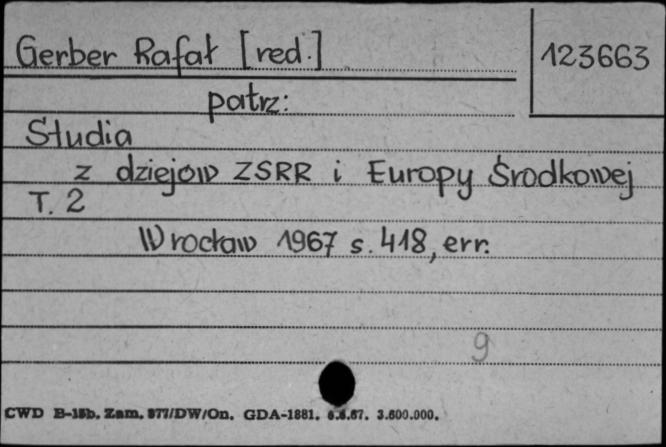 Gerber Rafał [red.]
123663
patrz:
Studia
z dziejów ZSRR i Europy Środkowej
T. 2
Wrocław 1967 s. 418, err.
9
CWD B-15b. Zam. 877/DW/On. GDA-1881. 6.6.67. 3.600.000.